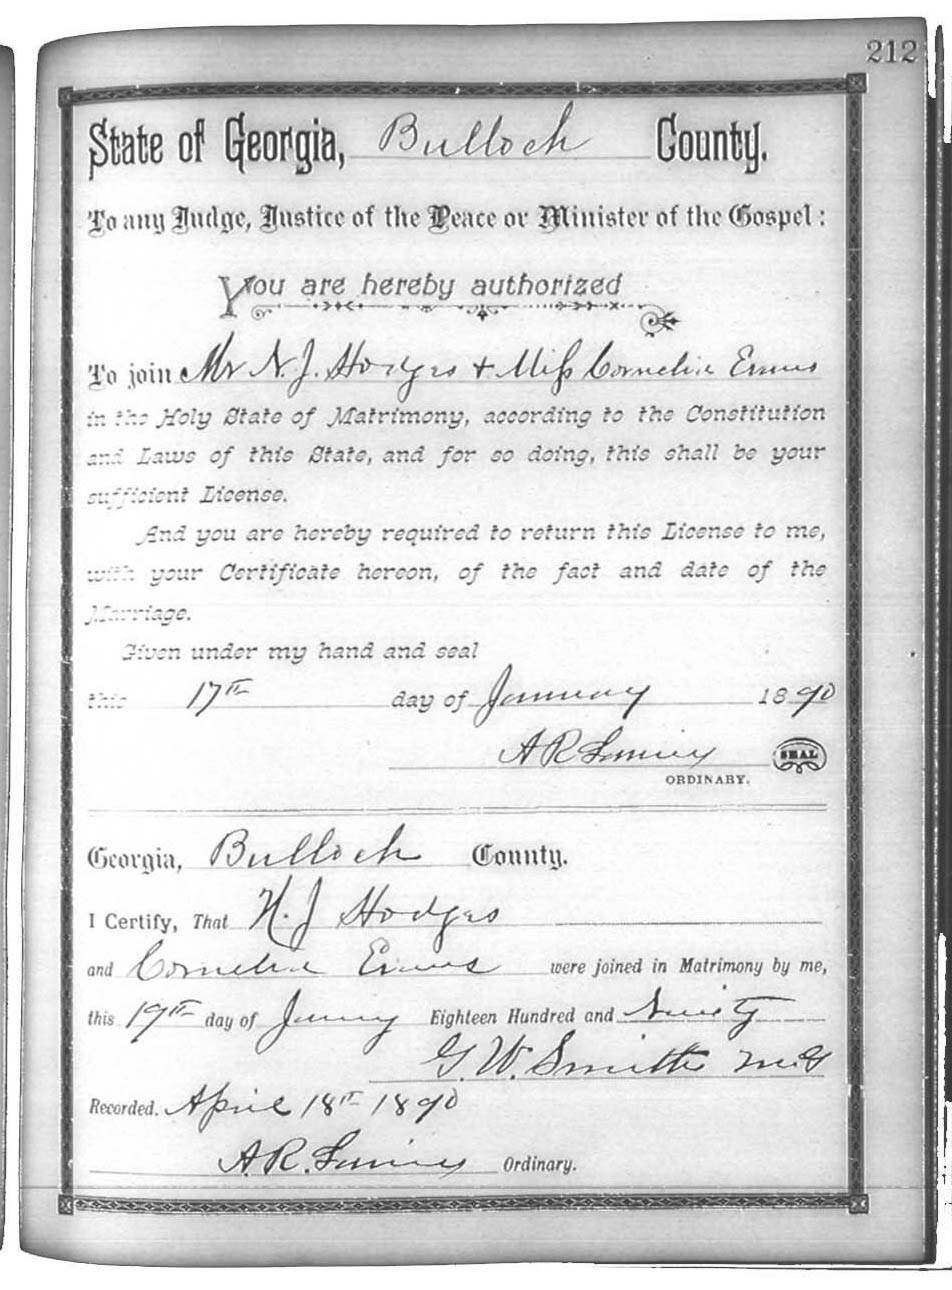 212
State of Georgia, Bulloch County.
To any Judge, Justice of the Peace or Minister of the Gospel:
You are hereby authorized
To join Mr N. J. Hodges + Miss Cornelia Evans
in the Holy State of Matrimony, according to the Constitution
and Laws of this State, and for so doing, this shall be your
sufficient License.
And you are hereby required to return this License to me,
with your Certificate hereon, of the fact and date of the
Marriage.
Given under my hand and seal
this 17th day of January 1890
A R Lanier SEAL
ORDINARY.
Georgia, Bulloch County.
I Certify, That J Hodges
and Cornelia Evans were joined in Matrimony by me,
this 19th day of Jany Eighteen Hundred and Ninety
G. W. Smith M.G
Recorded. April 18th 1890
A. R. Lanier Ordinary.